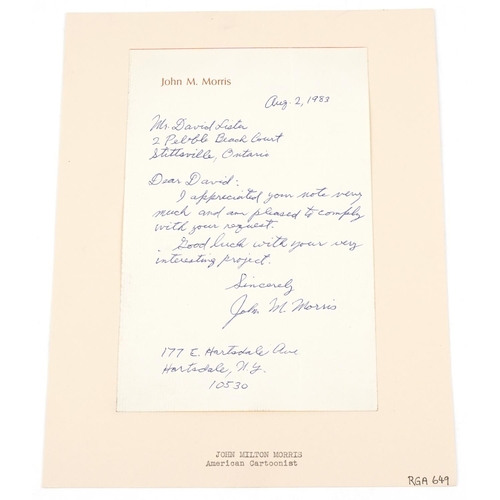 John M. Morris
Aug. 2, 1983
Mr. David Lister
2 Pebble Beach Court
Stittsville, Ontario
Dear David:
I appreciated your note very
much and am pleased to comply
with your request.
Good luck with your very
interesting project.
Sincerely
John M. Morris
177 E. Hartsdale Ave
Hartsdale, N.Y.
10530
JOHN MILTON MORRIS
American Cartoonist
RGA 649